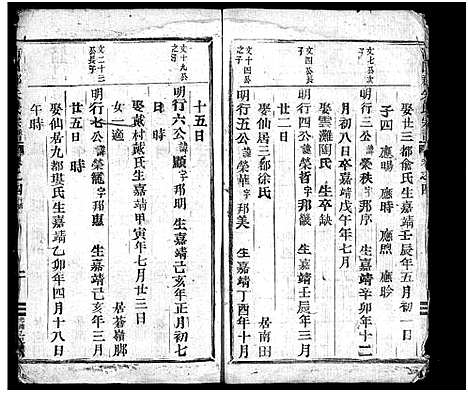 娶廿三都俞氏生嘉靖壬辰年五月一日
子四 應暘 應時 應煦 應聆
文七公次子
明行三公諱榮秩字邦序 生嘉靖辛卯年十二
月初八日卒嘉靖戊午年七月
娶雲灘閻氏 生卒缺
文四公長子
明行四公諱榮 字邦嚴 生嘉靖壬辰年三月
廿二日 居南田
娶仙居三都徐氏
文十四公長子
明行五公諱榮華字邦美 生嘉靖丁酉年十月
十五日
文十九公之子
明行六公諱顯字邦明 生嘉靖己亥年正月初七
日時 居蒼嶺腳
娶戴村戴氏生嘉靖甲寅年七月廿三日
女一適
文二十三公長子
明行七公諱榮寵字邦惠 生嘉靖己亥年三月
廿五日時
娶仙居九都堪氏生嘉靖乙卯年四月十八日
午時